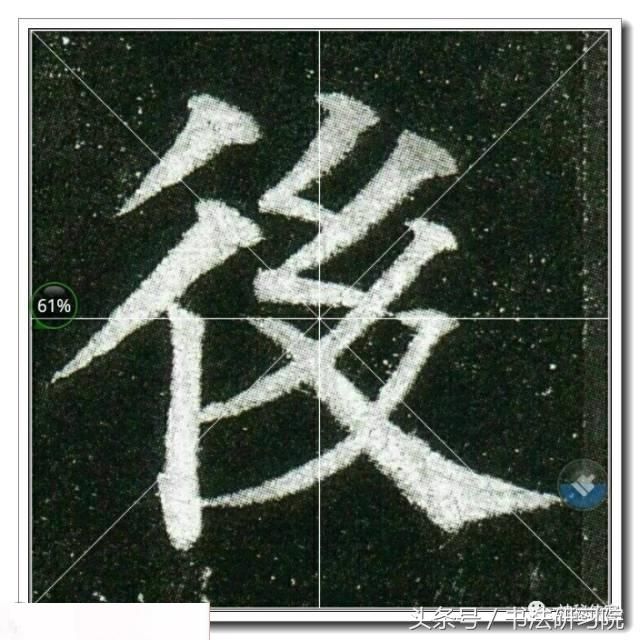 後
61%
头条号 / 书法研习院